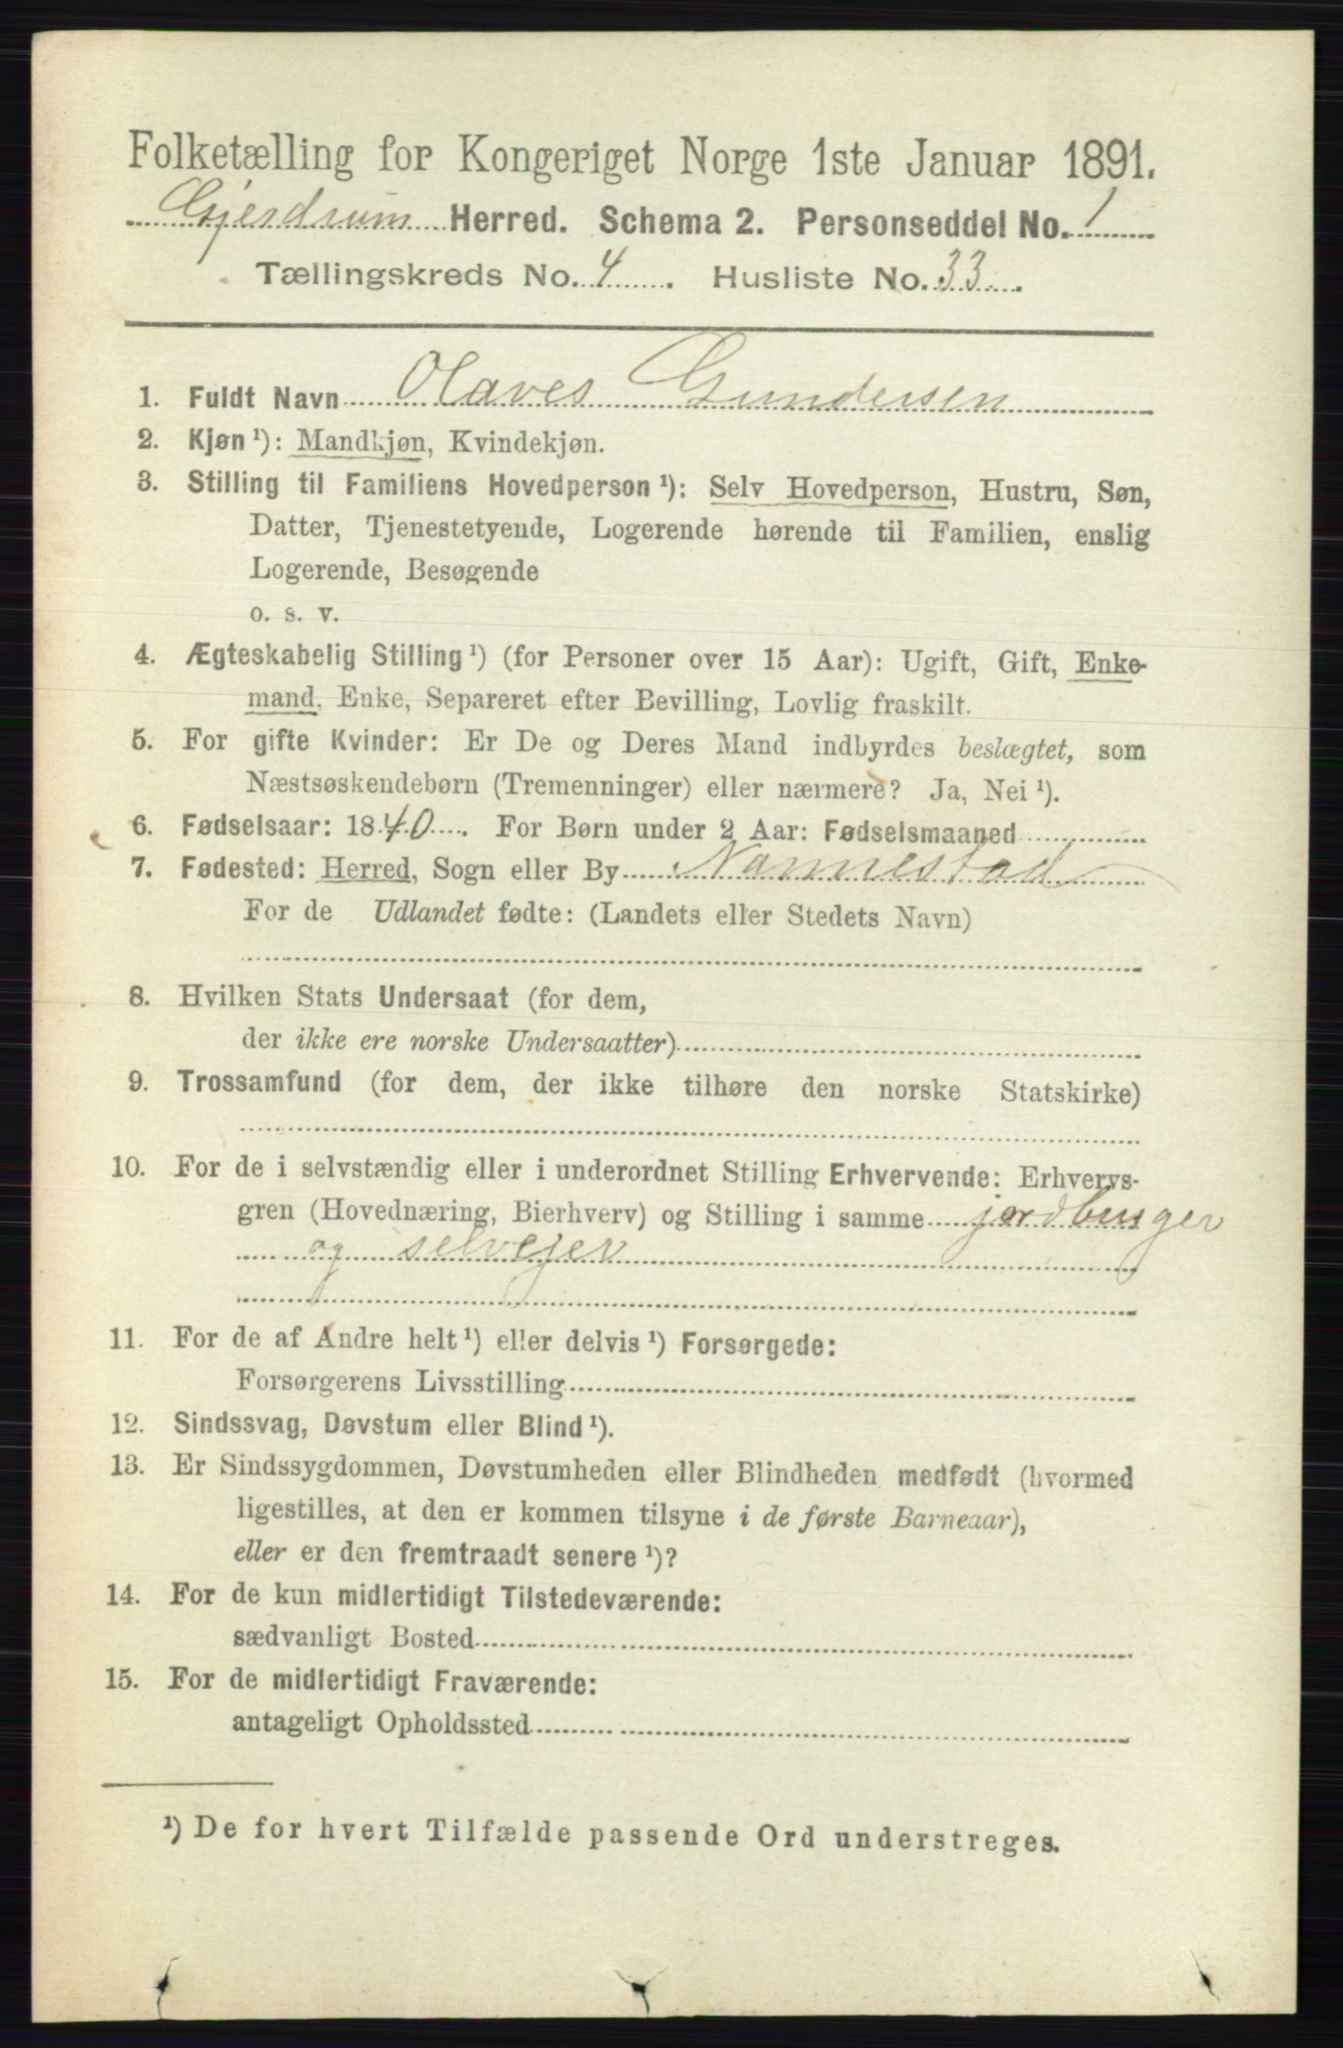 Folketælling for Kongeriget Norge 1ste Januar 1891.
Gjerdrum Herred. Schema 2. Personseddel No. 1
Tællingskreds No. 4. Husliste No. 33.
1. Fuldt Navn Olaves Gundersen
2. Kjøn ¹): Mandkjøn, Kvindekjøn.
3. Stilling til Familiens Hovedperson ¹): Selv Hovedperson, Hustru, Søn,
Datter, Tjenestetyende, Logerende hørende til Familien, enslig
Logerende, Besøgende
o. s. v.
4. Ægteskabelig Stilling ¹) (for Personer over 15 Aar): Ugift, Gift, Enke-
mand, Enke, Separeret efter Bevilling, Lovlig fraskilt.
5. For gifte Kvinder: Er De og Deres Mand indbyrdes beslægtet, som
Næstsøskendebørn (Tremenninger) eller nærmere? Ja, Nei ¹).
6. Fødselsaar: 1840. For Børn under 2 Aar: Fødselsmaaned
7. Fødested: Herred, Sogn eller By Nannestad
For de Udlandet fødte: (Landets eller Stedets Navn)
8. Hvilken Stats Undersaat (for dem,
der ikke ere norske Undersaatter)
9. Trossamfund (for dem, der ikke tilhøre den norske Statskirke)
10. For de i selvstændig eller i underordnet Stilling Erhvervende: Erhvervs-
gren (Hovednæring, Bierhverv) og Stilling i samme jordbruger
og selvejer
11. For de af Andre helt ¹) eller delvis ¹) Forsørgede:
Forsørgerens Livsstilling
12. Sindssvag, Døvstum eller Blind ¹).
13. Er Sindssygdommen, Døvstumheden eller Blindheden medfødt (hvormed
ligestilles, at den er kommen tilsyne i de første Barneaar),
eller er den fremtraadt senere ¹)?
14. For de kun midlertidigt Tilstedeværende:
sædvanligt Bosted
15. For de midlertidigt Fraværende:
antageligt Opholdssted
¹) De for hvert Tilfælde passende Ord understreges.